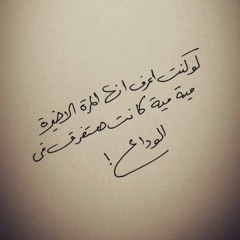 لو كنت اعرف انها المرة الاخيرة
مية مية كانت هتفرق في
الوداع !